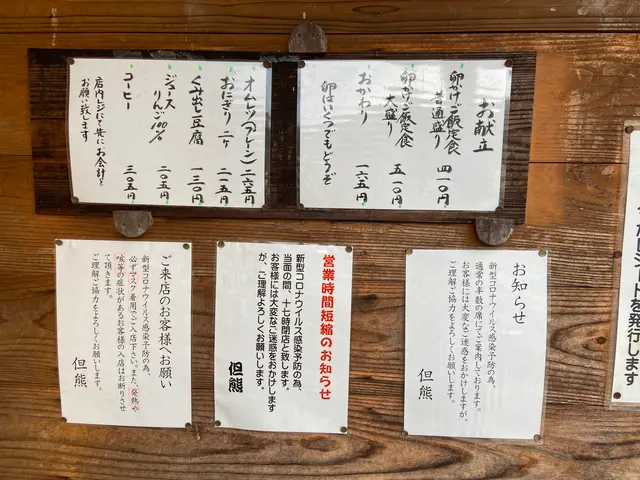 お献立
卵かけご飯定食
普通盛り 四一〇円
卵かけご飯定食
大盛り 五一〇円
おかわり 一六五円
卵はいくつでもどうぞ
オムレツ(プレーン) 二六五円
おにぎり 二ヶ 二一五円
くみ出し豆腐 一三〇円
ジュース
りんご100% 二〇五円
コーヒー 三〇五円
店内レジにて先にお会計を
お願い致します
お知らせ
新型コロナウイルス感染予防の為、
通常の半数の席にてご案内しております。
お客様には大変なご迷惑をおかけしますが、
ご理解ご協力をよろしくお願いします。
但熊
営業時間短縮のお知らせ
新型コロナウイルス感染予防の為、
当面の間、十七時閉店と致します。
お客様には大変なご迷惑をおかけします
が、ご理解よろしくお願いします。
但熊
ご来店のお客様へお願い
新型コロナウイルス感染予防の為、
必ずマスク着用でご入店下さい。また、発熱や
咳等の症状があるお客様の入店はお断りさせ
て頂きます。
ご理解ご協力をよろしくお願いします。
但熊
を発行します